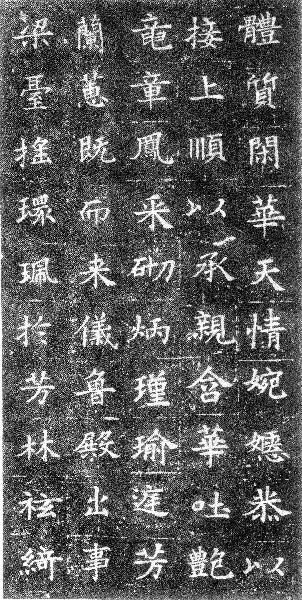 體質閑華天情婉嫕恭以
接上順以承親含華吐艷
竜章鳳采砌炳瑾瑜庭芳
蘭蕙既而来儀魯殿出事
梁臺搖環珮於芳林袨綺